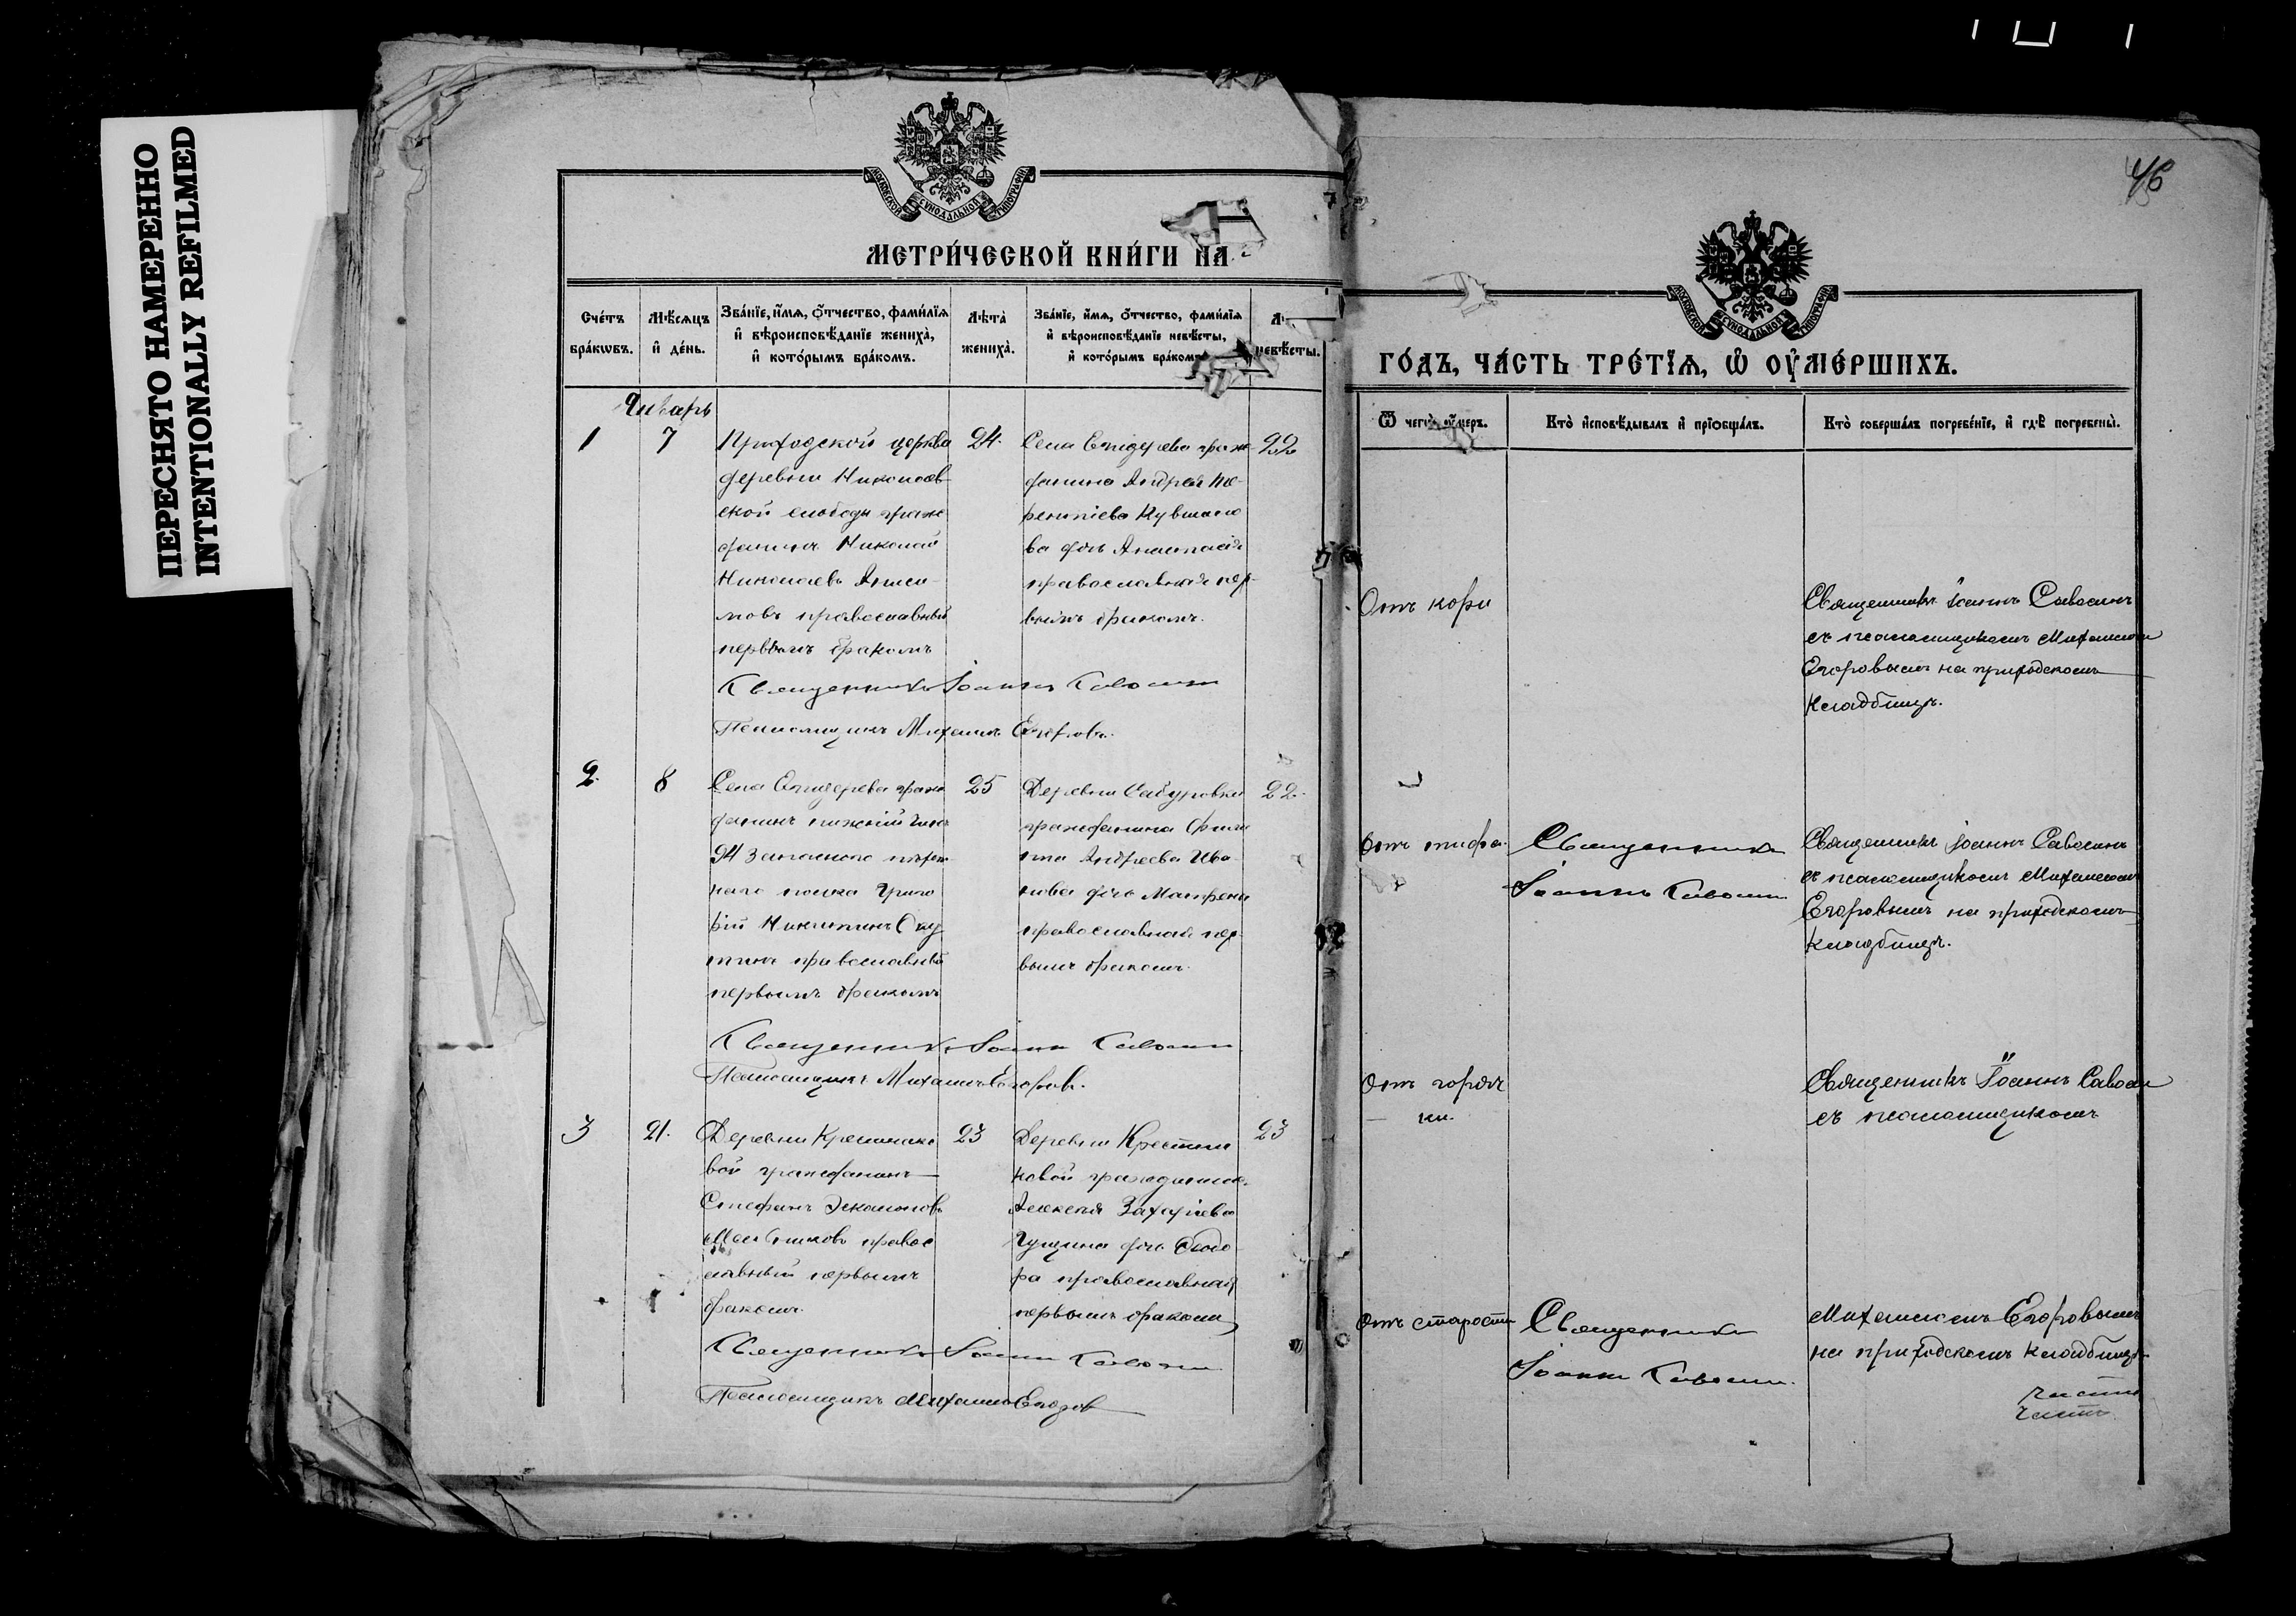 ПЕРЕСНЯТО НАМЕРЕННО
INTENTIONALLY REFILMED
МОСКОВСКОЙ СѴНОДАЛЬНОЙ ТИПОГРАФІИ
МЕТРИ́ЧЕСКОЙ КНИ́ГИ НА
Сче́тъ бра́кѡвъ.
Мѣ́сяцъ и҆ де́нь.
Зва́нїе, и҆́мѧ, ѻ҆́тчество, фами́лїѧ и҆ вѣроисповѣ́данїе жениха̀, и҆ кото́рымъ бра́комъ.
Лѣта̀ жениха̀.
Зва́нїе, и҆́мѧ, ѻ҆́тчество, фами́лїѧ и҆ вѣроисповѣ́данїе невѣ́сты, и҆ кото́рымъ бра́комъ
невѣ́сты.
Январь
1
7
Приходской церкви
деревни Николаев
ской слободы граж
данинъ Николай
Николаевъ
православный
первымъ бракомъ
24.
Села граж-
данина Андрея Те-
рентіева
ва дочь Анастасія
православная пер-
вымъ бракомъ.
22
Священникъ Іоаннъ Савосин
Псаломщикъ Михаилъ Егоровъ.
2.
8
Села граж
данинъ нижній чинъ
94 запасного пѣхот
наго полка Григо
рій Никитинъ
православный
первымъ бракомъ
25
Деревни Сабуровки
гражданина Фили
па Андреева Ива
нова дочь Матрена
православная пер
вымъ бракомъ.
22.
Священникъ Іоанн Савосин
Псаломщикъ Михаилъ Егоров.
3
21.
Деревни
вой гражданинъ
Стефанъ
правос
лавный первымъ
бракомъ.
23
Деревни
ковой гражданина
Алексея
дочь Ѳеодо
ра православная
первымъ бракомъ
23
Священникъ Іоанн Савосин
Псаломщикъ Михаилъ Егоров
46
МОСКОВСКОЙ СѴНОДАЛЬНОЙ ТИПОГРАФІИ
ГО́ДЪ, ЧА́СТЬ ТРЕ́ТЇѦ, Ѡ҆ ОУ҆МЕ́РШИХЪ.
Ѿ чегѡ̀ оу҆́меръ.
Кто̀ и҆сповѣ́дывалъ и҆ прїѡбща́лъ.
Кто̀ соверша́лъ погребе́нїе, и҆ гдѣ̀ погребены̀.
Отъ кори
Священникъ Іоаннъ Савосинъ
съ псаломщикомъ Михаиломъ
Егоровымъ на приходскомъ
кладбищѣ.
Отъ тифа.
Священникъ
Іоаннъ Савосин
Священникъ Іоаннъ Савосинъ
съ псаломщикомъ Михаиломъ
Егоровымъ на приходскомъ
кладбищѣ.
Отъ горяч
ки.
Священникъ Іоаннъ Савоси
съ псаломщикомъ
Отъ старости
Священникъ
Іоанн Савосин.
Михаиломъ Егоровымъ
на приходскомъ кладбищѣ
части
часть